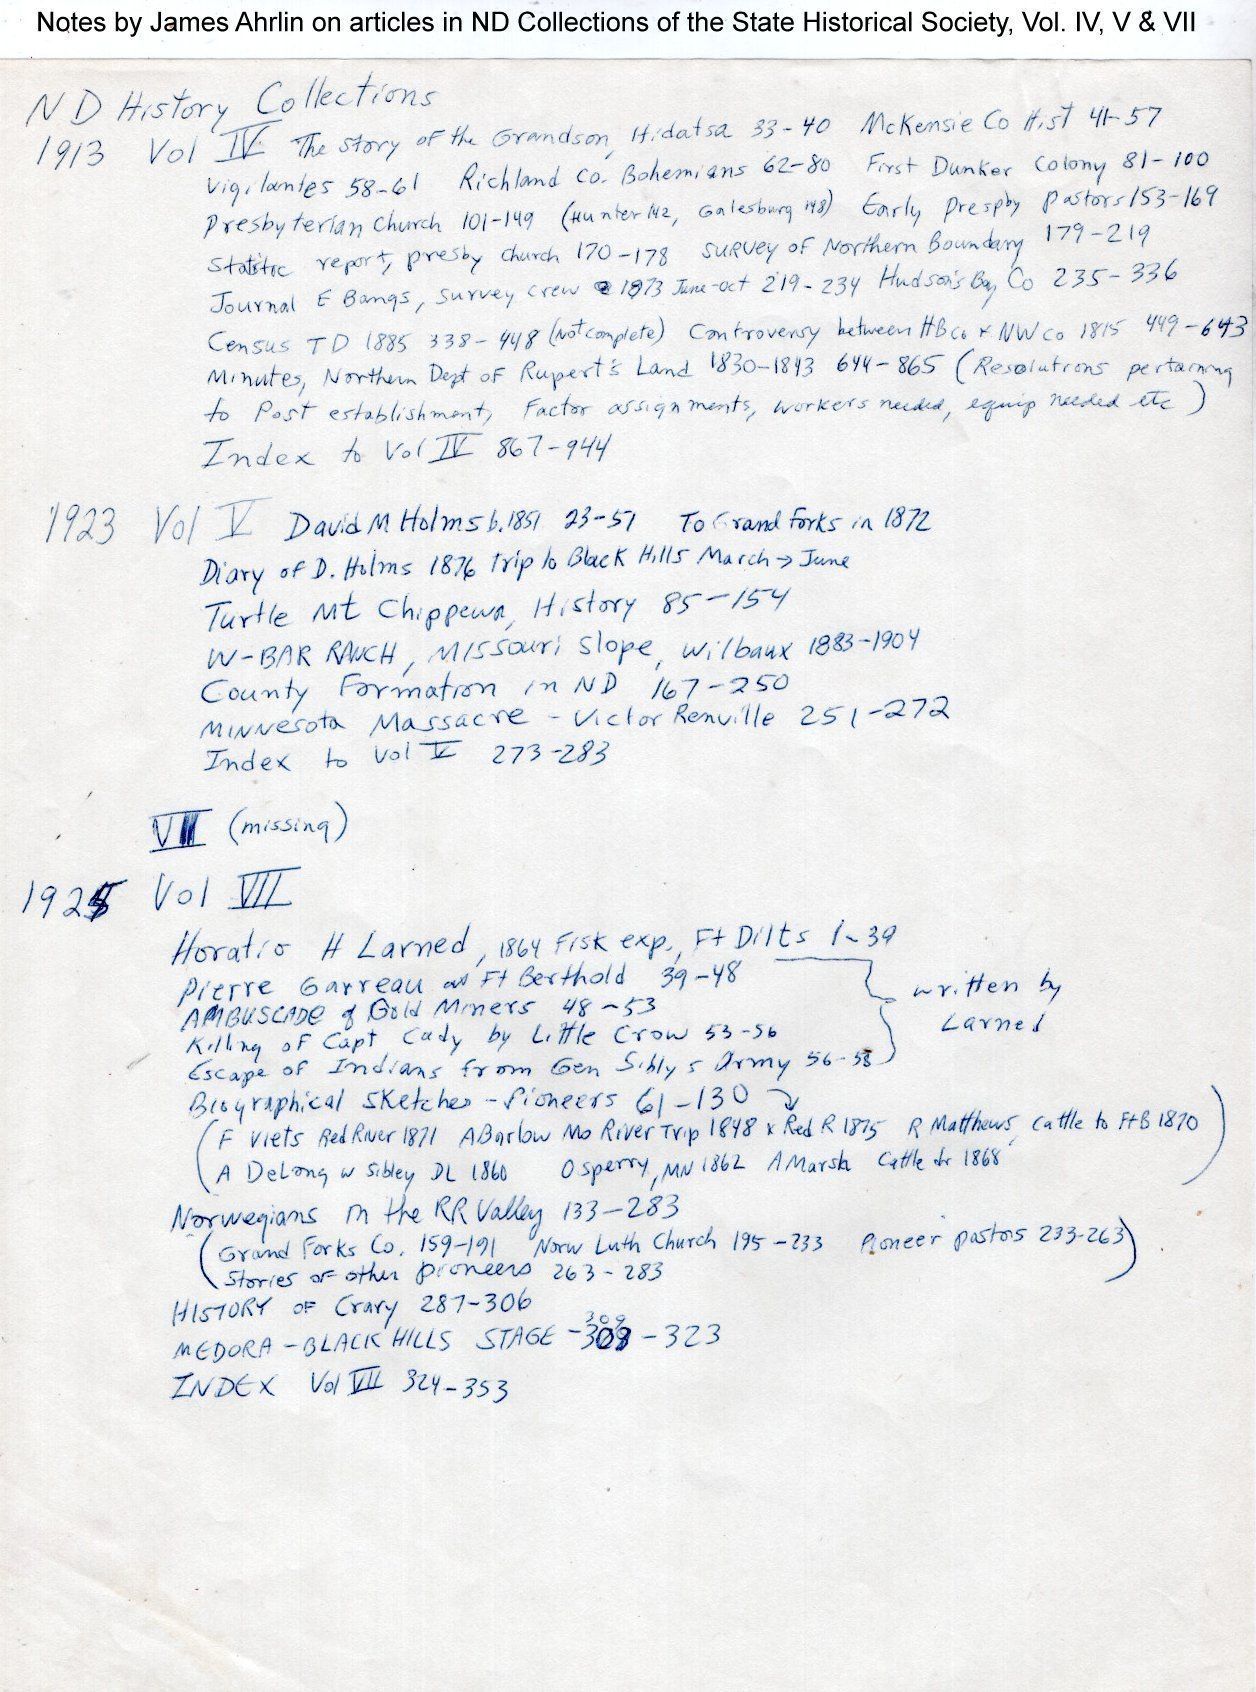 Notes by James Ahrlin on articles in ND Collections of the State Historical Society, Vol. IV, V & VII
ND History Collections
1913 Vol IV The story of the Grandson, Hidatsa 33-40 McKensie Co Hist 41-57
Vigilantes 58-61 Richland Co. Bohemians 62-80 First Dunker Colony 81-100
Presbyterian Church 101-149 (Hunter 142, Galesburg 148) Early Prespby Pastors 153-169
Statistic report, presby church 170-178 Survey of Northern Boundary 179-219
Journal E Bangs, survey crew 1873 June-Oct 219-234 Hudson's Bay Co 235-336
Census TD 1885 338-448 (not complete) Controversy between HBCo + NWCo 1815 449-643
Minutes, Northern Dept of Rupert's Land 1830-1843 644-865 (Resolutions pertaining
to Post establishment, Factor assignments, workers needed, equip needed etc)
Index to Vol IV 867-944
1923 Vol V David M Holms b.1851 23-57 To Grand Forks in 1872
Diary of D. Holms 1876 trip to Black Hills March → June
Turtle Mt Chippewa, History 85-154
W-BAR RANCH, Missouri Slope, Wilbaux 1883-1904
County Formation in ND 167-250
Minnesota Massacre - Victor Renville 251-272
Index to Vol V 273-283
(missing)
1925 Vol VII
Horatio H Larned, 1864 Fisk exp., Ft Dilts 1-39
Pierre Garreau at Ft Berthold 39-48
written by
AMBUSCADE of Gold Miners 48-53
Larned
Killing of Capt Cady by Little Crow 53-56
Escape of Indians from Gen Siblys Army 56-58
Biographical Sketches - Pioneers 61-130
(F Viets Red River 1871 A Barlow Mo River Trip 1848 & Red R 1875 R Matthews, Cattle to Ft B 1870
A DeLong w Sibley DL 1860 O Sperry, MN 1862 A Marsh Cattle dr 1868)
Norwegians in the RR Valley 133-283
(Grand Forks Co. 159-191 Norw Luth Church 195-233 Pioneer pastors 233-263
Stories of other pioneers 263-283)
HISTORY OF Crary 287-306
309
MEDORA - BLACK HILLS STAGE - 309 - 323
INDEX Vol VII 324-353